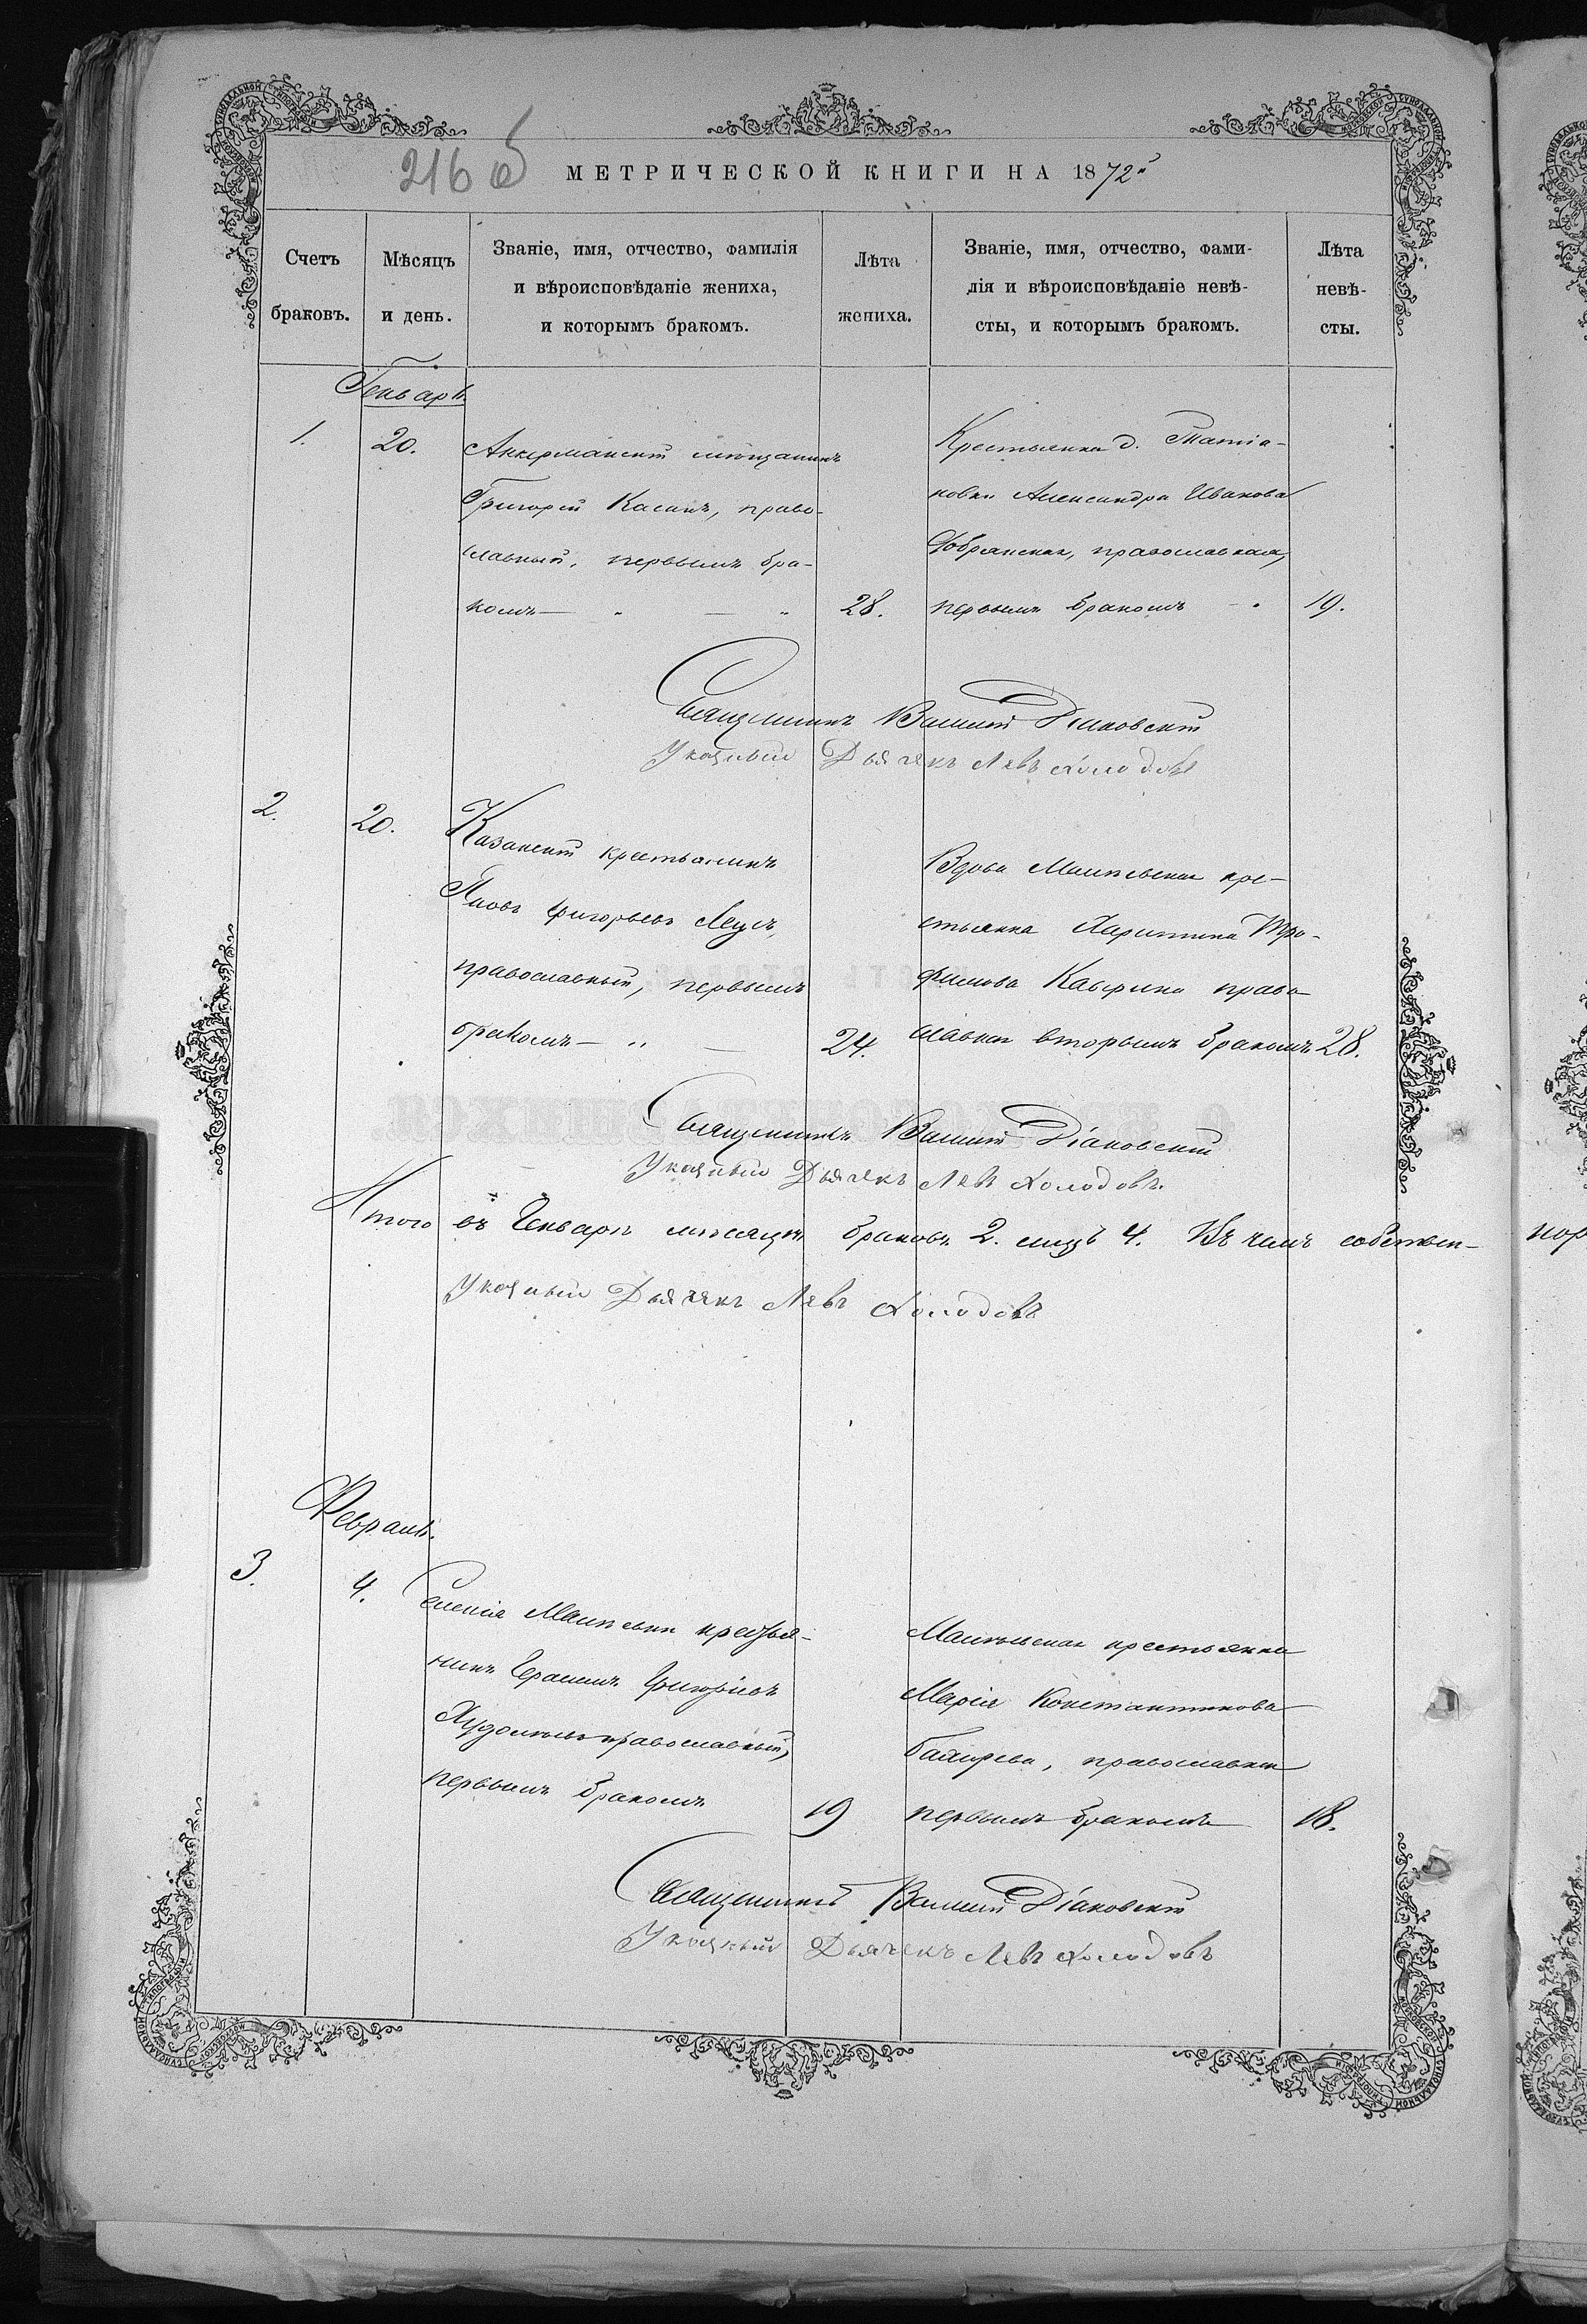 216 об
МЕТРИЧЕСКОЙ КНИГИ НА 1872й
Счетъ браковъ.
Мѣсяцъ и день.
Званіе, имя, отчество, фамилія
и вѣроисповѣданіе жениха,
и которымъ бракомъ.
Лѣта жениха.
Званіе, имя, отчество, фами-
лія и вѣроисповѣданіе невѣ-
сты, и которымъ бракомъ.
Лѣта невѣ-
сты.
Генварь.
1.
20.
Аккерманскій мѣщанинъ
Григорій Касапъ, право-
славный, первымъ бра-
комъ — " — "
28.
Крестьянка д.
новки Александра Иванова
Добрянская, православная,
первымъ бракомъ — "
19.
Священникъ Василій Діаковскій
Указный Дьячекъ Левъ Холодовъ
2.
20.
Казанскій крестьянинъ
Яковъ Григорьевъ
православный, первымъ
бракомъ — " —
24.
Вдова кре-
стьянка Харитина Тро-
фимова право
славная вторымъ бракомъ
28.
Священникъ Василій Діаковскій
Указный Дьячекъ Левъ Холодовъ.
Итого въ Генварѣ мѣсяцѣ браковъ 2. лицъ 4. Въ чемъ собствен-
Указный Дьячекъ Левъ Холодовъ
Февраль.
3.
4.
Селенія крестья-
нинъ Герасимъ Григоріевъ
православный,
первымъ бракомъ
19
крестьянка
Марія Константинова
православная
первымъ бракомъ
18.
Священникъ Василій Діаковскій
Указный Дьячекъ Левъ Холодовъ